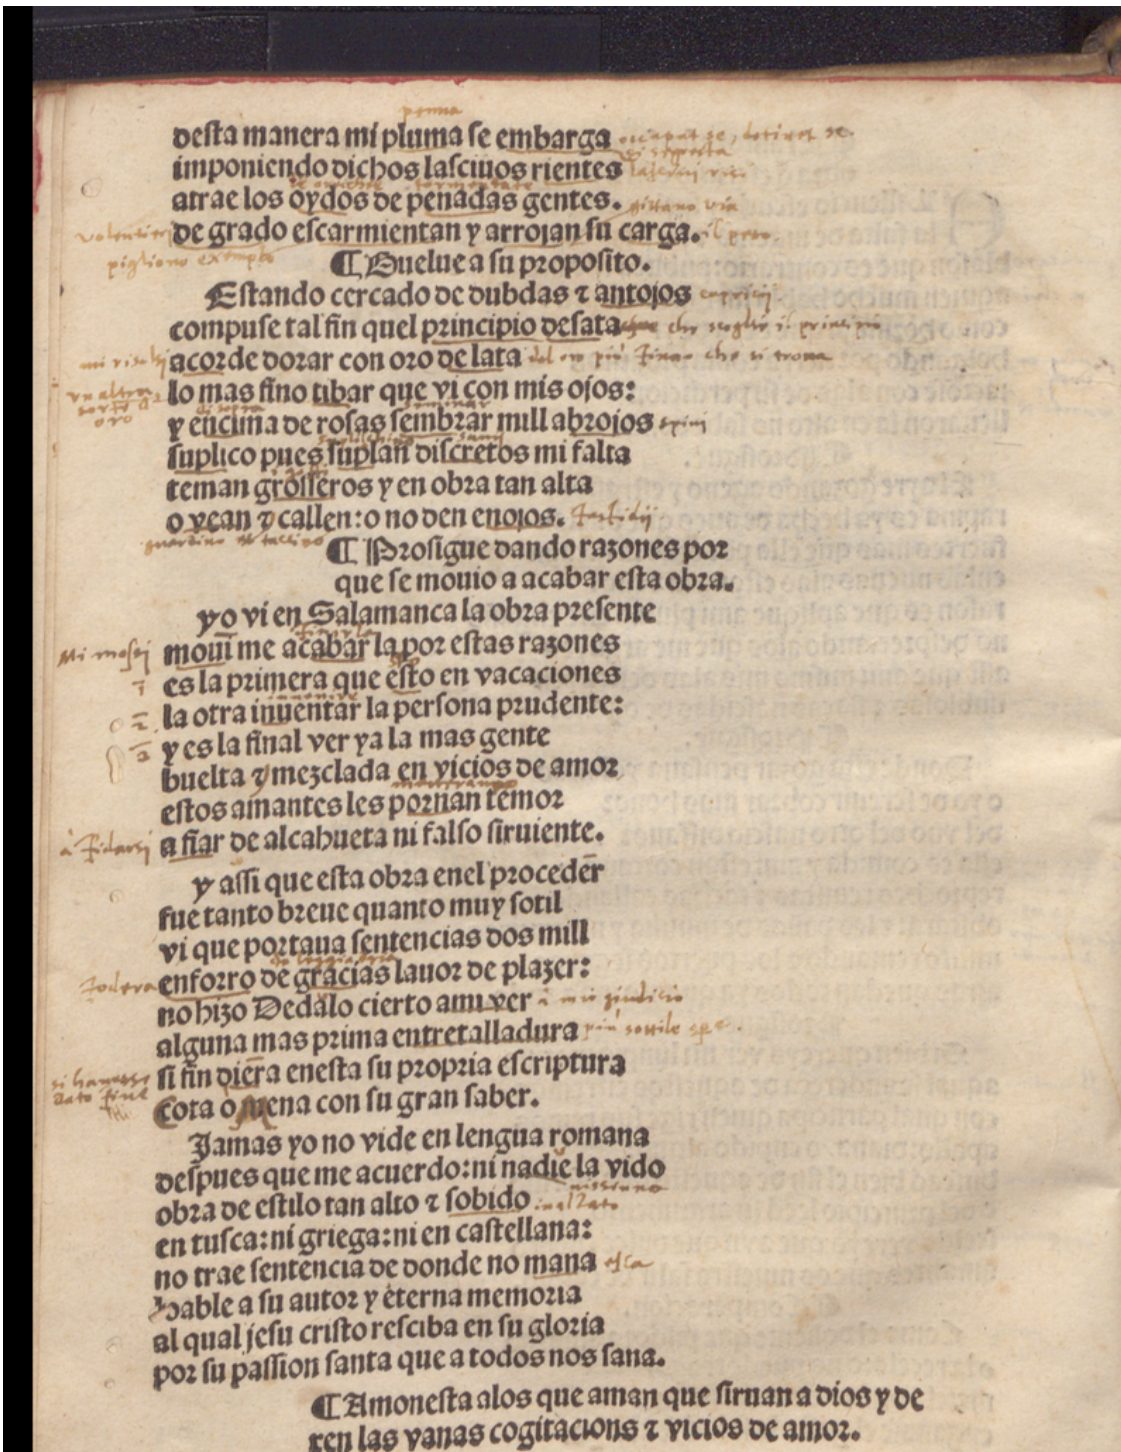 penna
desta manera mi pluma se embarga
imponiendo dichos lasciuos rientes
atrae los oydos de penadas gentes. gittano via
volentieri de grado escarmientan y arrojan su carga. il peso
pigliono exemplo
¶ Buelue a su proposito.
Estando cercado de dubdas ⁊ antojos capricij
compuse tal fin quel principio desata che scoglie il principio
acorde dorar con oro de lata del oro piu finno che si trova
lo mas fino tibar que vi con mis ojos:
oro
y encima de rosas sembrar mill abrojos spini
suplico pues suplan discretos mi falta
teman grosseros y en obra tan alta
o vean ⁊ callen: o no den enojos. fastidij
¶ Prosigue dando razones por
que se mouio a acabar esta obra.
yo vi en Salamanca la obra presente
finirla
Mi mossi mouiī me acabar la por estas razones
es la primera que esto en vacaciones
la otra inuentar la persona prudente:
y es la final ver ya la mas gente
buelta ⁊ mezclada en vicios de amor
estos amantes les pornan temor
à fidarsi a fiar de alcahueta ni falso siruiente.
y assi que esta obra enel procedēr
fue tanto breue quanto muy sotil
vi que portaua sentencias dos mill
di leggiadria
fodera enforro de gracias lauor de plazer:
no hizo Dedalo cierto ami ver a mio giudicio
alguna mas prima entretalladura piu sottile
si havesse si fin diera enesta su propria escriptura
dato fine Cota o Mena con su gran saber.
Jamas yo no vide en lengua romana
despues que me acuerdo: ni nadie la vido
nissuno
obra de estilo tan alto ⁊ sobido inalzato
en tusca: ni griega: ni en castellana:
no trae sentencia de donde no mana esca
loable a su autor y eterna memoria
al qual jesu cristo resciba en su gloria
por su passion santa que a todos nos sana.
¶ Amonesta alos que aman que siruan a dios y de
xen las vanas cogitacions ⁊ vicios de amor.